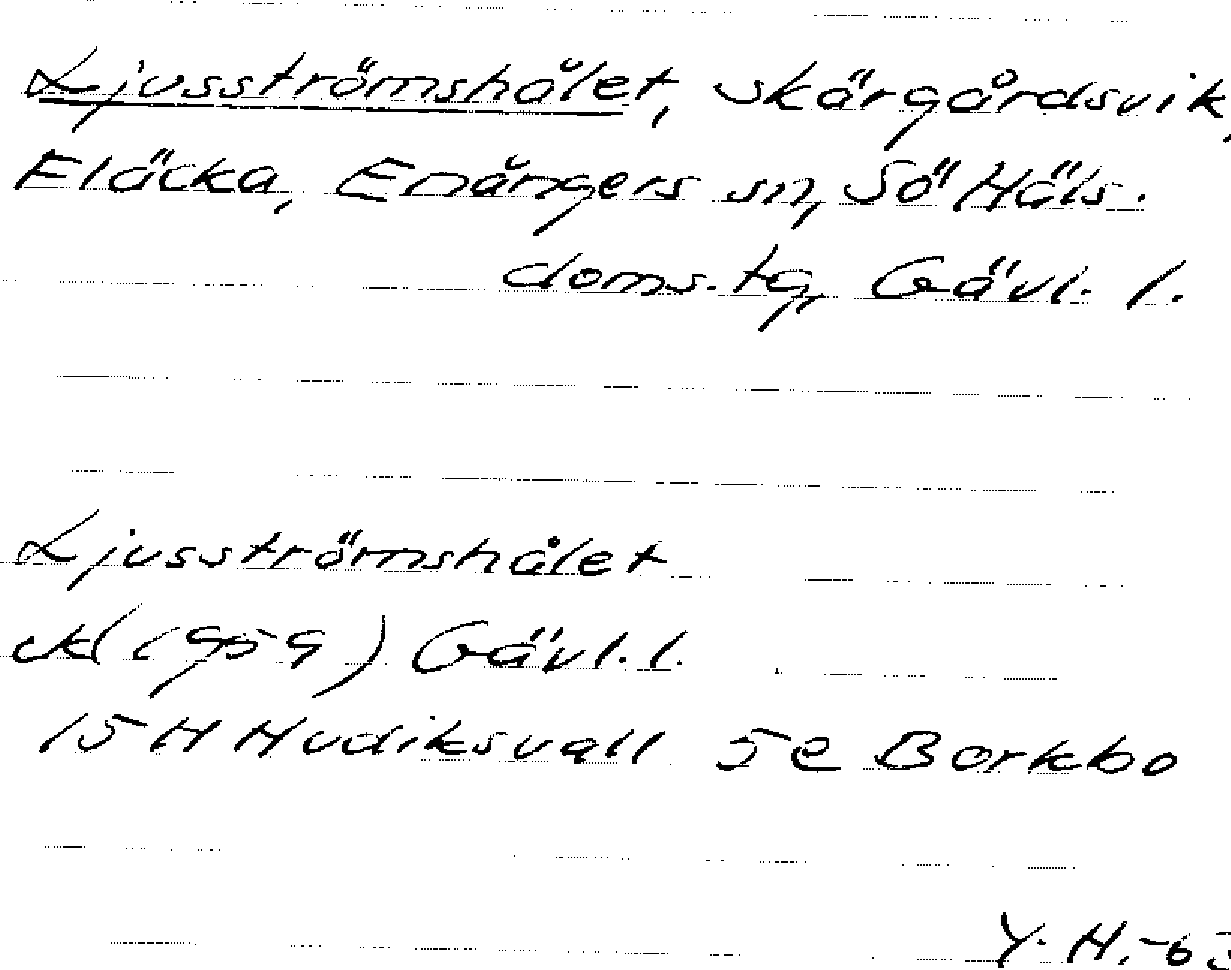 Ljusströmshålet, skärgårdsvik,
Eläcka, Enångers sn, Sö Häls.
doms. tg, Gävl. l.
Ljusströmshålet
ek (1959) Gävl. l.
15 H Hudiksvall 5 e Borkbo
Y. H. -63